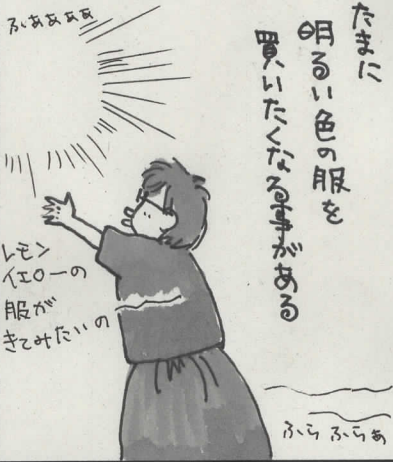 たまに
明るい色の服を
買いたくなる事がある
ふぁぁぁぁ
レモン
イエローの
服が
きてみたいの
ふらふらぁ